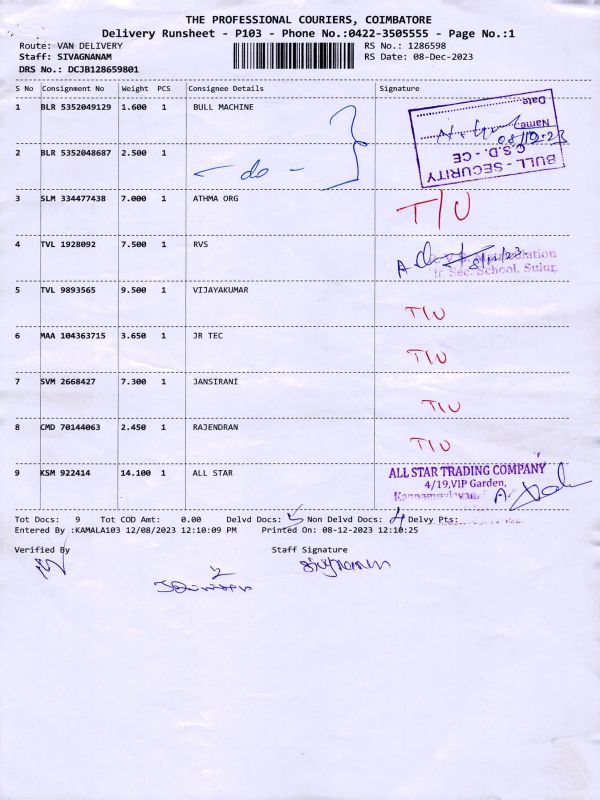 THE PROFESSIONAL COURIERS, COIMBATORE
Delivery Runsheet - P103 - Phone No.:0422-3505555 - Page No.:1
Route: VAN DELIVERY RS No.: 1286598
Staff: SIVAGNANAM RS Date: 08-Dec-2023
DRS No.: DCJB128659801
S No Consignment No Weight PCS Consignee Details Signature
1 BLR 5352049129 1.600 1 BULL MACHINE
Date
Name
08/12-23
BULL - SECURITY
C.S.D. - CE
2 BLR 5352048687 2.500 1 - do -
3 SLM 334477438 7.000 1 ATHMA ORG T/U
4 TVL 1928092 7.500 1 RVS
8/12/23
Sec. School, Sulur.
5 TVL 9893565 9.500 1 VIJAYAKUMAR T/U
6 MAA 104363715 3.650 1 JR TEC T/U
7 SVM 2668427 7.300 1 JANSIRANI T/U
8 CMD 70144063 2.450 1 RAJENDRAN T/U
9 KSM 922414 14.100 1 ALL STAR
ALL STAR TRADING COMPANY
4/19,VIP Garden,
Tot Docs: 9 Tot COD Amt: 0.00 Delvd Docs: 5 Non Delvd Docs: 4 Delvy Pts:
Entered By :KAMALA103 12/08/2023 12:10:09 PM Printed On: 08-12-2023 12:10:25
Verified By Staff Signature